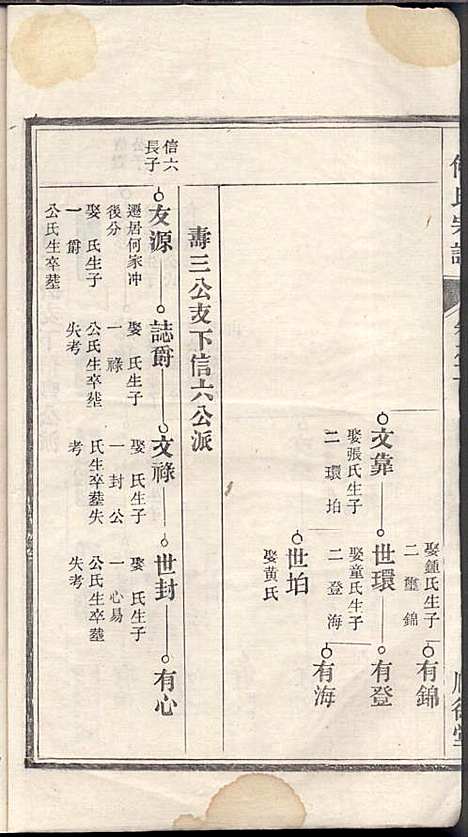 氏宗譜
有錦
娶鍾氏生子
二 璽 錦
文靠
娶張氏生子
二 環 珀
世環
娶童氏生子
二 登 海
有登
有海
世珀
娶黃氏
壽三公支下信六公派
信六
長子
友源
遷居何家冲
後分
娶 氏生子
一 爵
公氏生卒墓
誌爵
娶 氏生子
一 祿
公氏生卒墓
失考
文祿
娶 氏生子
一 封 公
氏生卒墓失
考
世封
娶 氏生子
一 心易
公氏生卒墓
失考
有心